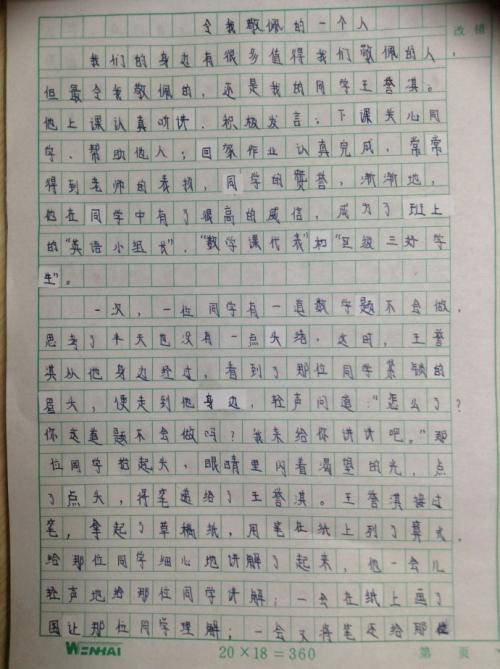 令我敬佩的一个人
改错
我们的身边有很多值得我们敬佩的人，
但最令我敬佩的，还是我的同学王誉淇。
他上课认真听讲，积极发言；下课关心同
学，帮助他人；回家作业认真完成，常常
得到老师的表扬，同学的赞誉，渐渐地，
他在同学中有了很高的威信，成为了班上
的“英语小组长”，“数学课代表”和“区级三好学
生”。
一次，一位同学有一道数学题不会做，
思考了半天也没有一点头绪，这时，王誉
淇从他身边经过，看到了那位同学紧锁的
眉头，便走到他身边，轻声问道：“怎么了？
你这道题不会做吗？我来给你讲讲吧。”那
位同学抬起头，眼睛里闪着渴望的光，点
了点头，将笔递给了王誉淇。王誉淇接过
笔，拿起了草稿纸，用笔在纸上列了算式，
给那位同学细心地讲解了起来，他一会儿
轻声地给那位同学讲解；一会在纸上画了
图让那位同学理解；一会又将笔还给那位
WENHAI
20×18=360
第 页